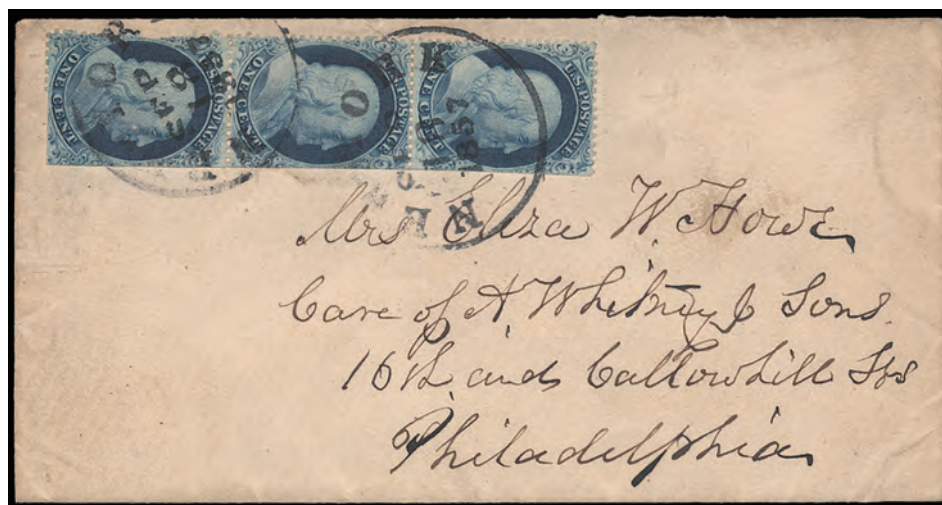 U.S. POSTAGE
ONE CENT
U.S. POSTAGE
ONE CENT
U.S. POSTAGE
ONE CENT
1857
Mrs Eliza W. Howe
Care of A. Whitney & Sons.
16th and Callowhill Sts
Philadelphia